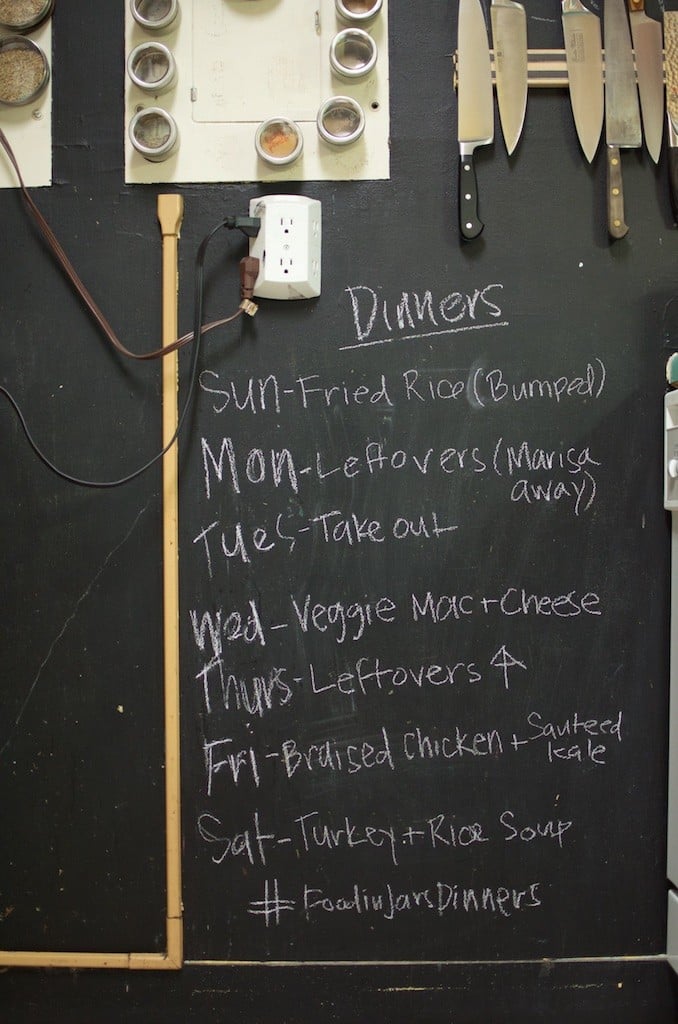 Dinners
Sun-Fried Rice (Bumped)
Mon-Leftovers (Marisa
away)
Tues-Take out
Wed-Veggie Mac+Cheese
Thurs-Leftovers ↑
Fri-Braised Chicken + Sauteed
kale
Sat-Turkey+Rice Soup
#FoodinJarsDinners